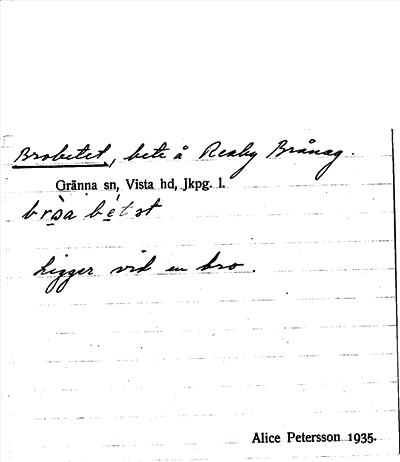 Brobetet, bete å Reaby Brånag.
Gränna sn, Vista hd, Jkpg. l.
Ligger vid en bro.
Alice Petersson 1935.